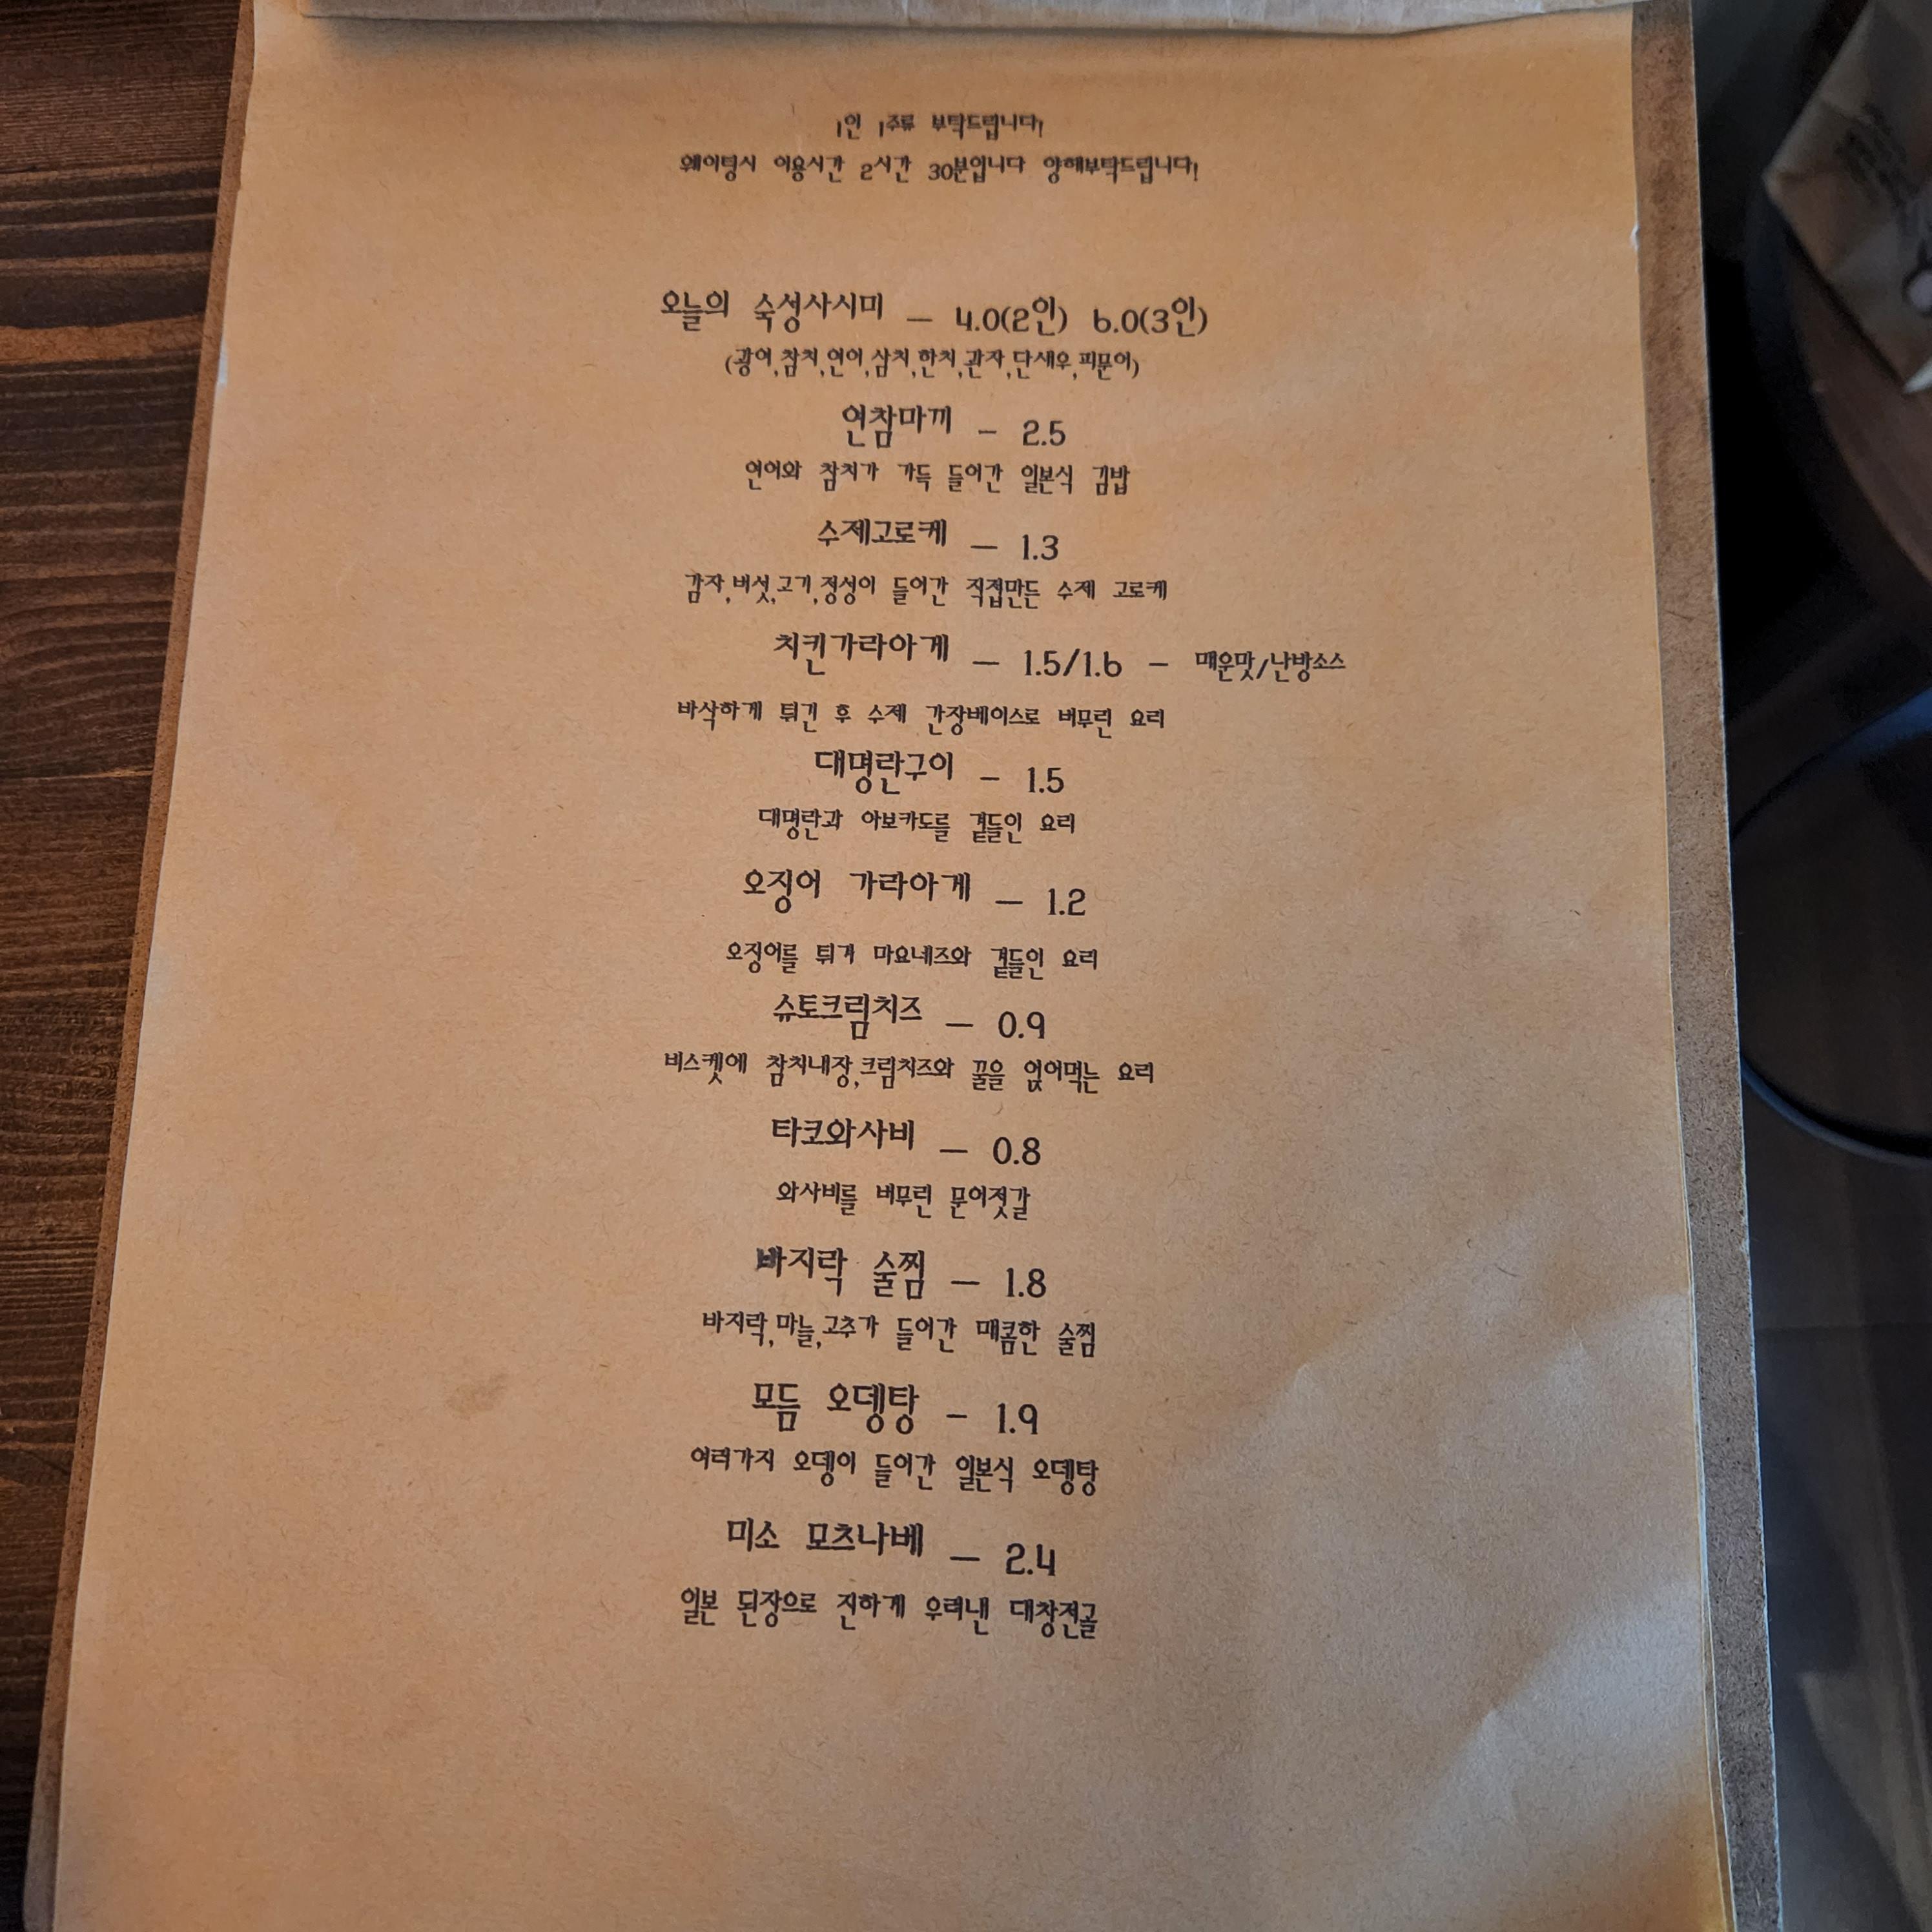 1인 1주류 부탁드립니다!
웨이팅시 이용시간 2시간 30분입니다 양해부탁드립니다!
오늘의 숙성사시미 — 4.0(2인) 6.0(3인)
(광어,참치,연어,삼치,한치,관자,단새우,피문어)
연참마끼 - 2.5
연어와 참치가 가득 들어간 일본식 김밥
수제고로케 — 1.3
감자,버섯,고기,정성이 들어간 직접만든 수제 고로케
치킨가라아게 — 1.5/1.6 - 매운맛/난방소스
바삭하게 튀긴 후 수제 간장베이스로 버무린 요리
대명란구이 - 1.5
대명란과 아보카도를 곁들인 요리
오징어 가라아게 — 1.2
오징어를 튀겨 마요네즈와 곁들인 요리
슈토크림치즈 — 0.9
비스켓에 참치내장,크림치즈와 꿀을 얹어먹는 요리
타코와사비 — 0.8
와사비를 버무린 문어젓갈
바지락 술찜 — 1.8
바지락,마늘,고추가 들어간 매콤한 술찜
모듬 오뎅탕 - 1.9
여러가지 오뎅이 들어간 일본식 오뎅탕
미소 모츠나베 — 2.4
일본 된장으로 진하게 우려낸 대창전골